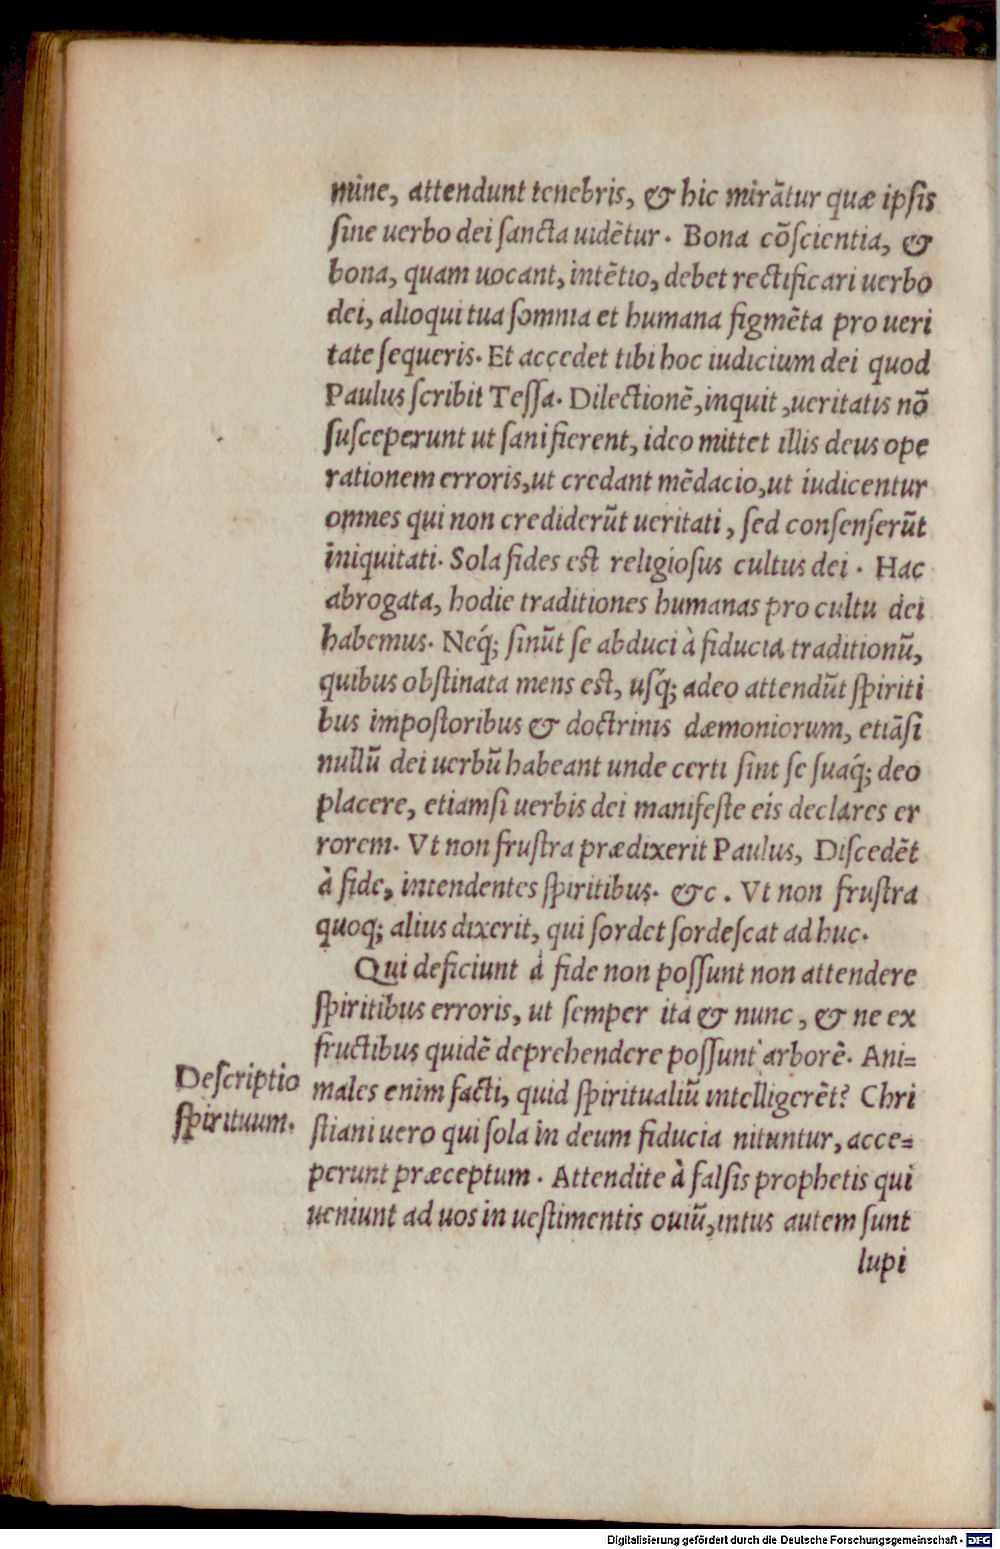 mine, attendunt tenebris, & hic mirãtur quæ ipsis
ſine uerbo dei ſancta uidẽtur. Bona cõſcientia, &
bona, quam uocant, intẽtio, debet rectificari uerbo
dei, alioqui tua ſomnia et humana figmẽta pro ueri
tate ſequeris. Et accedet tibi hoc iudicium dei quod
Paulus ſcribit Teſſa. Dilectionẽ, inquit, ueritatis nõ
ſuſceperunt ut ſani fierent, ideo mittet illis deus ope
rationem erroris, ut credant mẽdacio, ut iudicentur
omnes qui non crediderũt ueritati, ſed conſenſerũt
iniquitati. Sola fides est religioſus cultus dei. Hac
abrogata, hodie traditiones humanas pro cultu dei
habemus. Neq́; ſinũt ſe abduci à fiducia traditionũ,
quibus obſtinata mens est, uſq́; adeo attendũt ſpiriti
bus impoſtoribus & doctrinis dæmoniorum, etiãſi
nullũ dei uerbũ habeant unde certi ſint ſe ſuaq́; deo
placere, etiamſi uerbis dei manifeſte eis declares er
rorem. Vt non fruſtra prædixerit Paulus, Diſcedẽt
à fide, intendentes ſpiritibus. &c. Vt non fruſtra
quoq; alius dixerit, qui ſordet ſordeſcat ad huc.
Qui deficiunt à fide non poſſunt non attendere
ſpiritibus erroris, ut ſemper ita & nunc, & ne ex
fructibus quidẽ deprehendere poſſunt arborẽ. Ani=
Deſcriptio
ſpirituum.
males enim facti, quid ſpiritualiũ intelligerẽt? Chri
ſtiani uero qui ſola in deum fiducia nituntur, acce=
perunt præceptum. Attendite à falſis prophetis qui
ueniunt ad uos in ueſtimentis ouiũ, intus autem ſunt
lupi
Digitalisierung gefördert durch die Deutsche Forschungsgemeinschaft - DFG